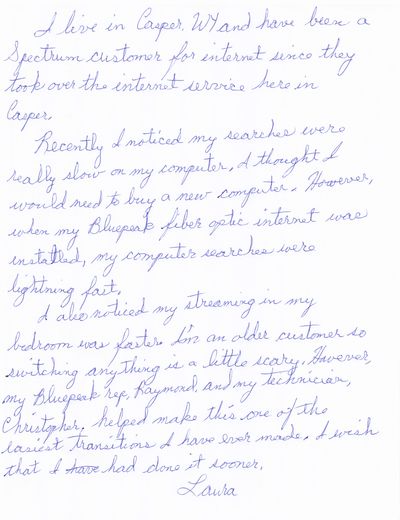 I live in Casper, WY and have been a
Spectrum customer for internet since they
took over the internet service here in
Casper.
Recently I noticed my searches were
really slow on my computer. I thought I
would need to buy a new computer. However,
when my Bluepeak fiber optic internet was
installed, my computer searches were
lightning fast.
I also noticed my streaming in my
bedroom was faster. I'm an older customer so
switching anything is a little scary. However,
my Bluepeak rep, Raymond, and my technician,
Christopher, helped make this one of the
easiest transitions I have ever made. I wish
that I have had done it sooner.
Laura